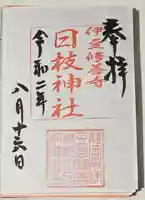 奉拝
伊豆修善寺
日枝神社
令和二年
八月十六日